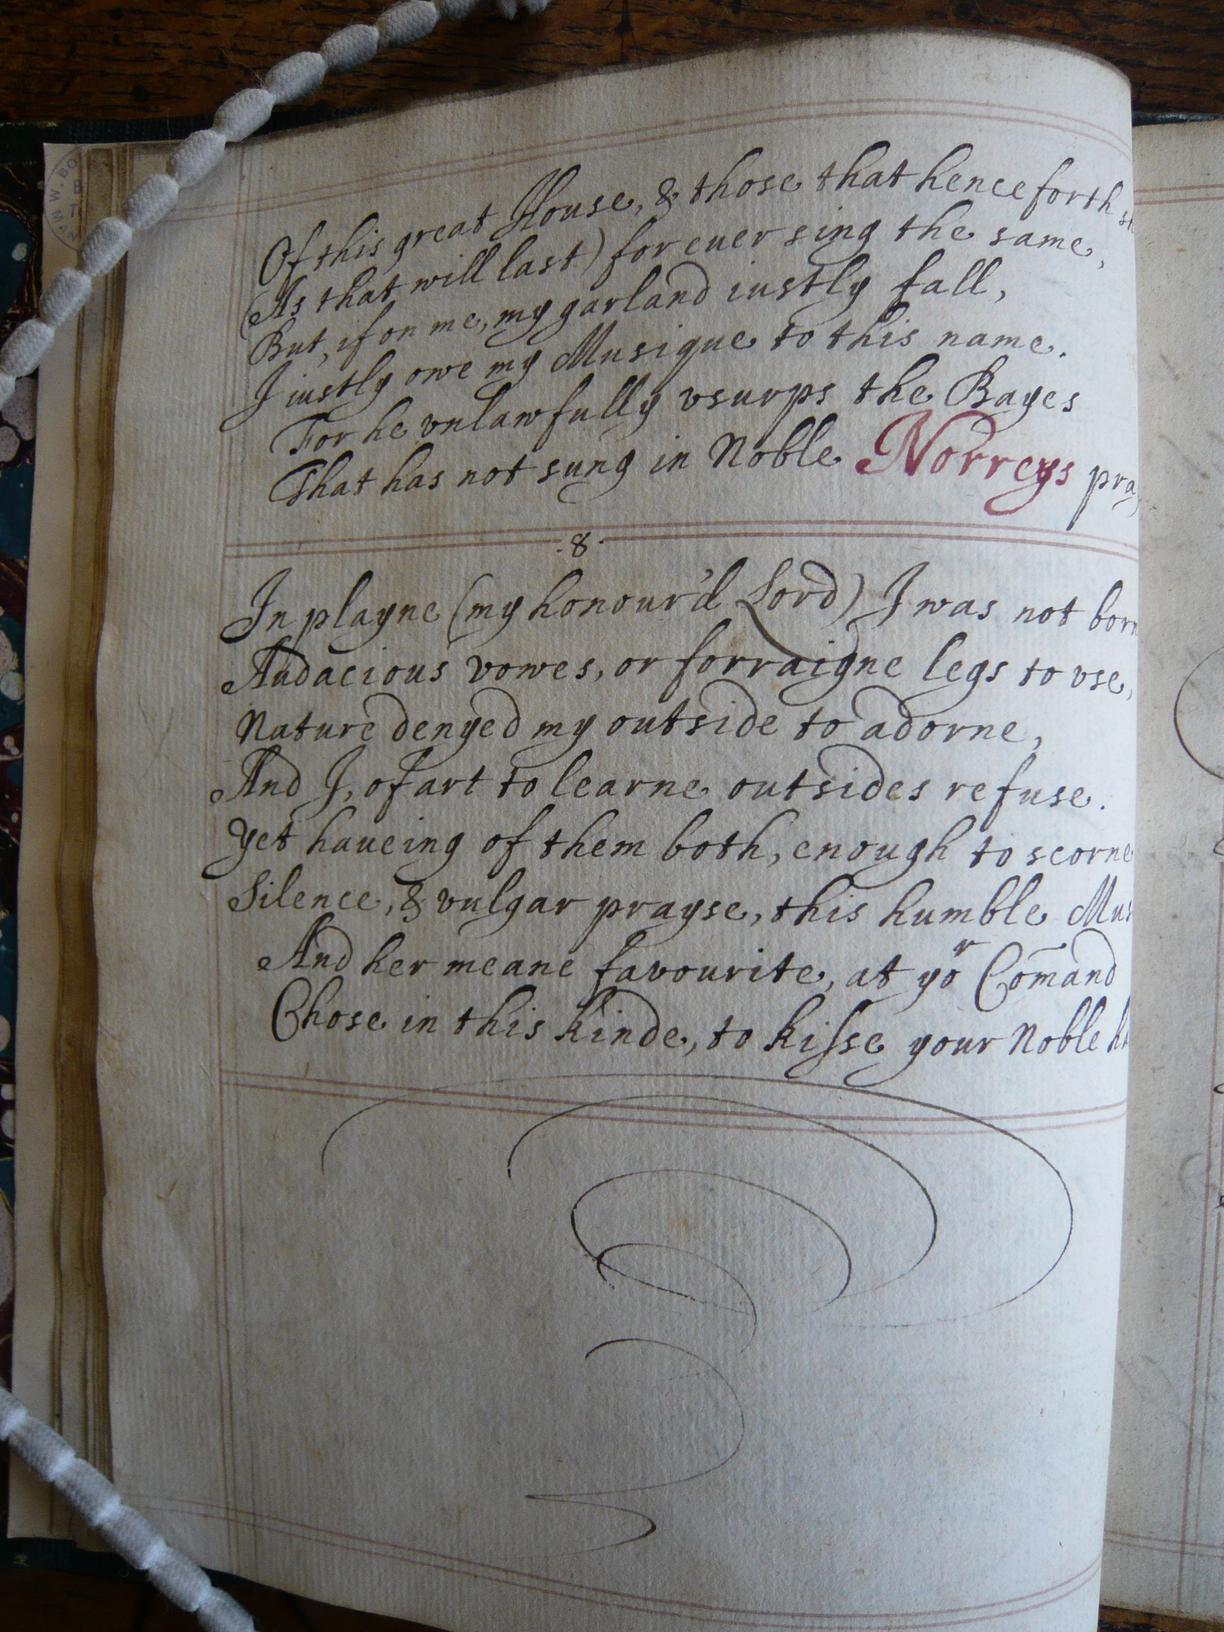 Of this great House, & those that henceforth
(As that will last) for euer sing the same,
But, if on me, my garland iustly fall,
I iustly owe my Musique to this name.
For he vnlawfully vsurps the Bayes
That has not sung in Noble Norreys
.8.
In playne (my honour'd Lord) I was not
Audacious vowes, or forraigne legs to vse,
Nature denyed my outside to adorne,
And I, of art to learne outsides refuse.
Yet haueing of them both, enough to scorne
Silence, & vulgar prayse, this humble
And her meane favourite, at yor Com̄and
Chose in this kinde, to kisse your Noble